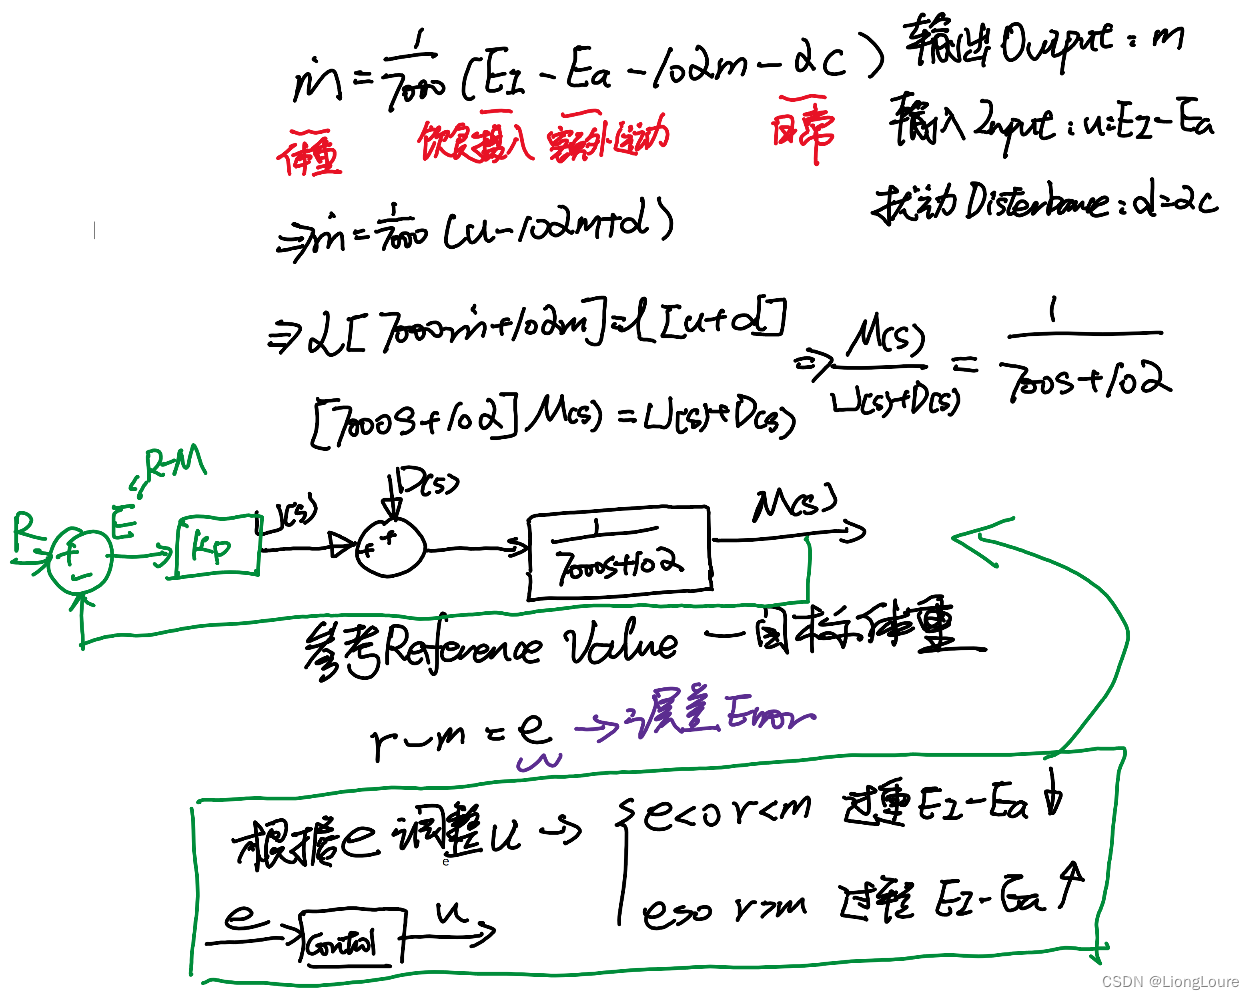 ṁ = 1/7000 (E_I - E_a - 102m - αC) 输出 Output: m
体重 饮食摄入 额外运动 日常
输入 Input: u=E_I-E_a
扰动 Disterbance: d=αC
⇒ ṁ = 1/7000 (u-102m+d)
⇒ L[7000ṁ+102m]=L[u+d]
⇒ M(s)/U(s)+D(s) = 1/700s+102
[7000s+102] M(s) = U(s)+D(s)
R-M
R E Kp U(s) D(s) 1/7000s+102 M(s)
+ - + +
参考Reference Value — 目标体重
r-m = e → 误差 Error
根据e 调整 u → { e<0 r<m 过重 E_I-E_a ↓
e
e>0 r>m 过轻 E_I-E_a ↑
e Control u
CSDN @LiongLoure